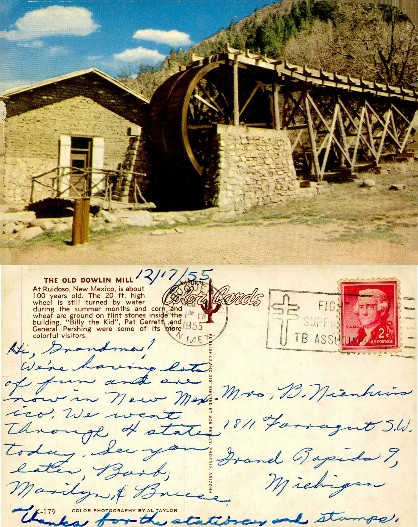 THE OLD DOWLIN MILL
At Ruidoso, New Mexico, is about
100 years old. The 20 ft. high
wheel is still turned by water
during the summer months and corn and
wheat are ground on flint stones inside the
building. "Billy the Kid", Pat Garrett, and
General Pershing were some of its more
colorful visitors.
12/17/55
Color Cards
1955
N. MEX.
FIG
TB
2¢
Hi, Grandma!
We're having lots
of fun and are
now in New Mex-
ico. We went
through 4 states
today. See you
later, Barb,
Marilyn, & Bruce
Thanks for the stationary and stamps.
K-179
COLOR PHOTOGRAPH BY AL TAYLOR
Mrs. B. Nienhuis
1811 Farragut S.W.
Grand Rapids 9,
Michigan